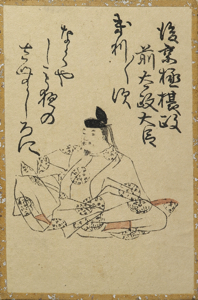 後京極摂政
前太政大臣
きり〱す
なくや
しも夜の
さむしろに